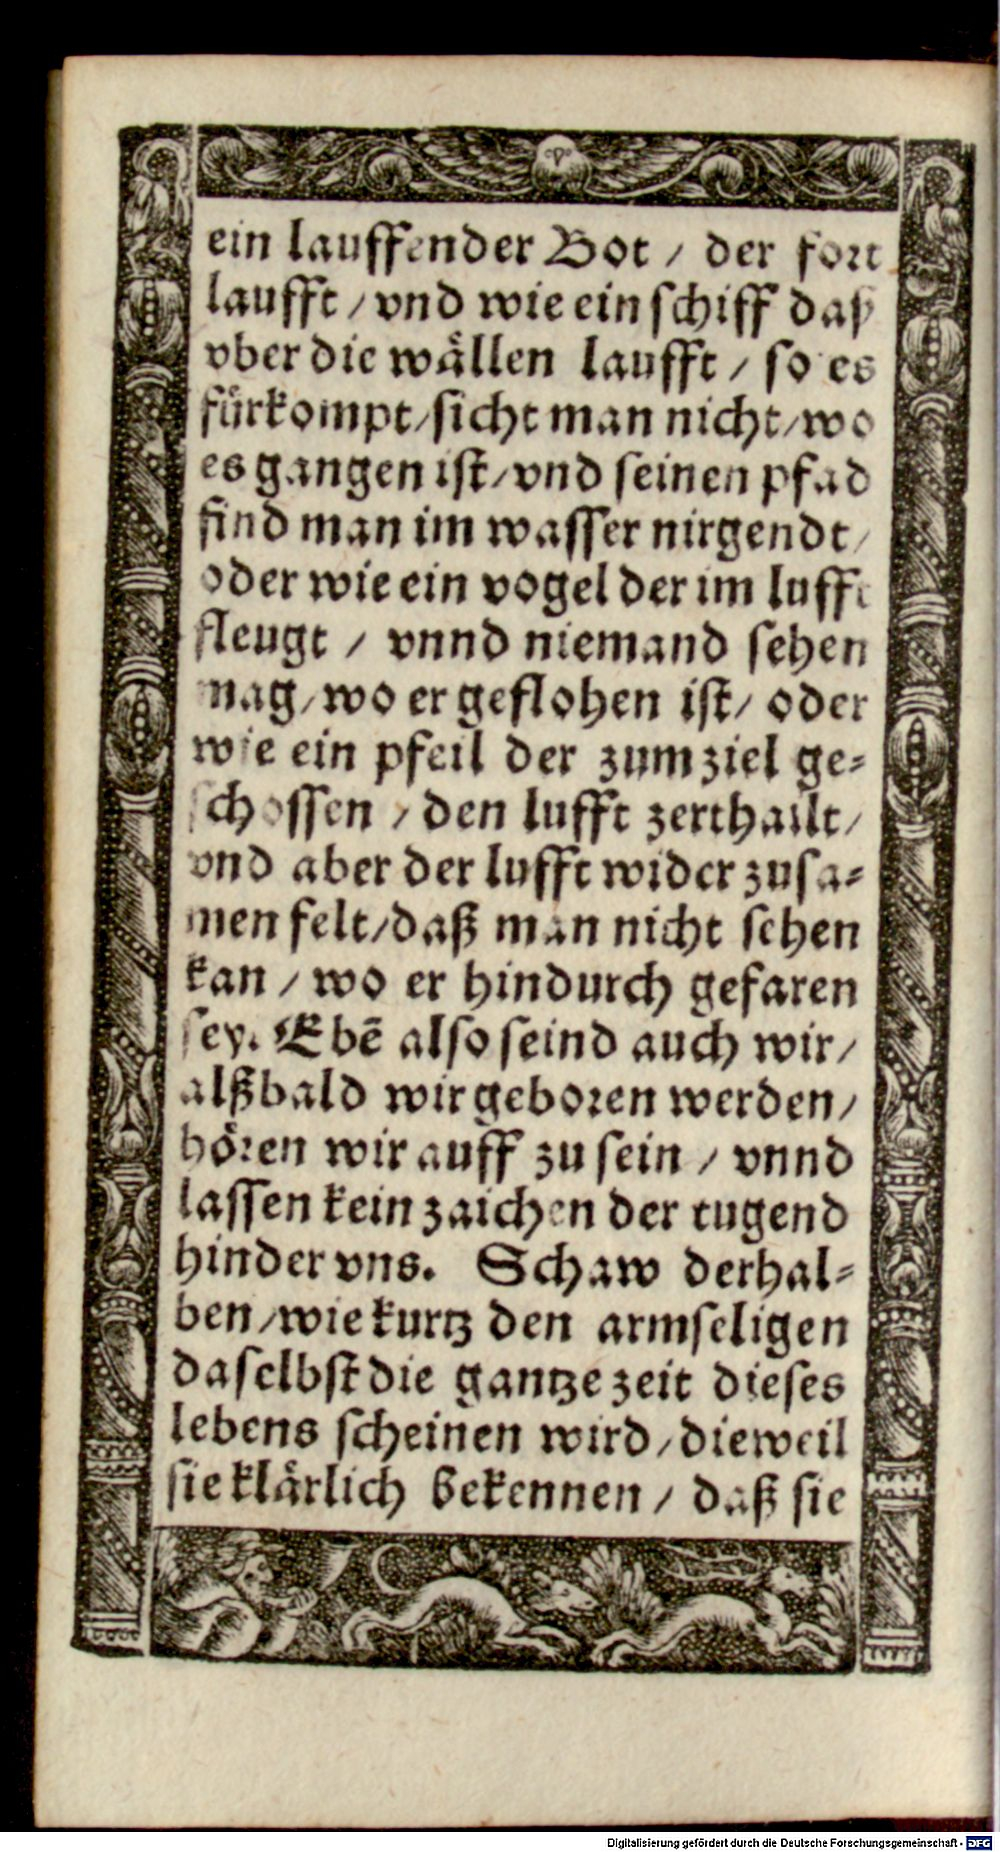 ein lauffender Bot / der fort
laufft / vnd wie ein schiff daß
vber die wällen laufft / so es
fürkompt / sicht man nicht / wo
es gangen ist / vnd seinen pfad
find man im wasser nirgendt /
oder wie ein vogel der im lufft
fleugt / vnnd niemand sehen
mag / wo er geflohen ist / oder
wie ein pfeil der zum ziel ge⸗
schossen / den lufft zerthailt /
vnd aber der lufft wider zusa⸗
men felt / daß man nicht sehen
kan / wo er hindurch gefaren
sey. Ebē also seind auch wir /
alßbald wir geboren werden /
hören wir auff zu sein / vnnd
lassen kein zaichen der tugend
hinder vns. Schaw derhal⸗
ben / wie kurtz den armseligen
daselbst die gantze zeit dieses
lebens scheinen wird / dieweil
sie klärlich bekennen / daß sie
Digitalisierung gefördert durch die Deutsche Forschungsgemeinschaft - DFG